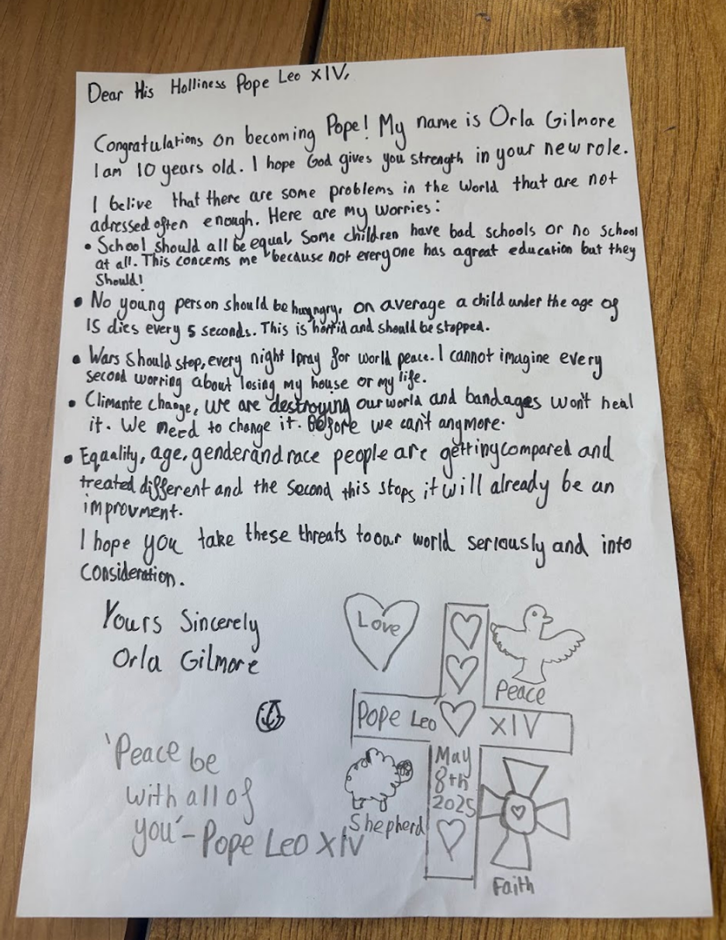 Dear His Holliness Pope Leo XIV,
Congratulations on becoming Pope! My name is Orla Gilmore
I am 10 years old. I hope God gives you strength in your new role.
I belive that there are some problems in the world that are not
adressed often enough. Here are my worries:
• School should all be equal, Some children have bad schools or no school
at all. This concerns me because not everyone has a great education but they
Should!
• No young person should be hungry, on average a child under the age of
15 dies every 5 seconds. This is horrid and should be stopped.
• Wars should stop, every night I pray for world peace. I cannot imagine every
second worring about losing my house or my life.
• Climante change, we are destroying our world and bandages won't heal
it. We need to change it. Before we can't anymore.
• Equality, age, gender and race people are getting compared and
treated different and the second this stops it will already be an
improvment.
I hope you take these threats to our world seriously and into
consideration.
Yours Sincerely
Orla Gilmore
'Peace be
with all of
you' - Pope Leo XIV
Love
Peace
Pope Leo XIV
May
8th
2025
Shepherd
Faith